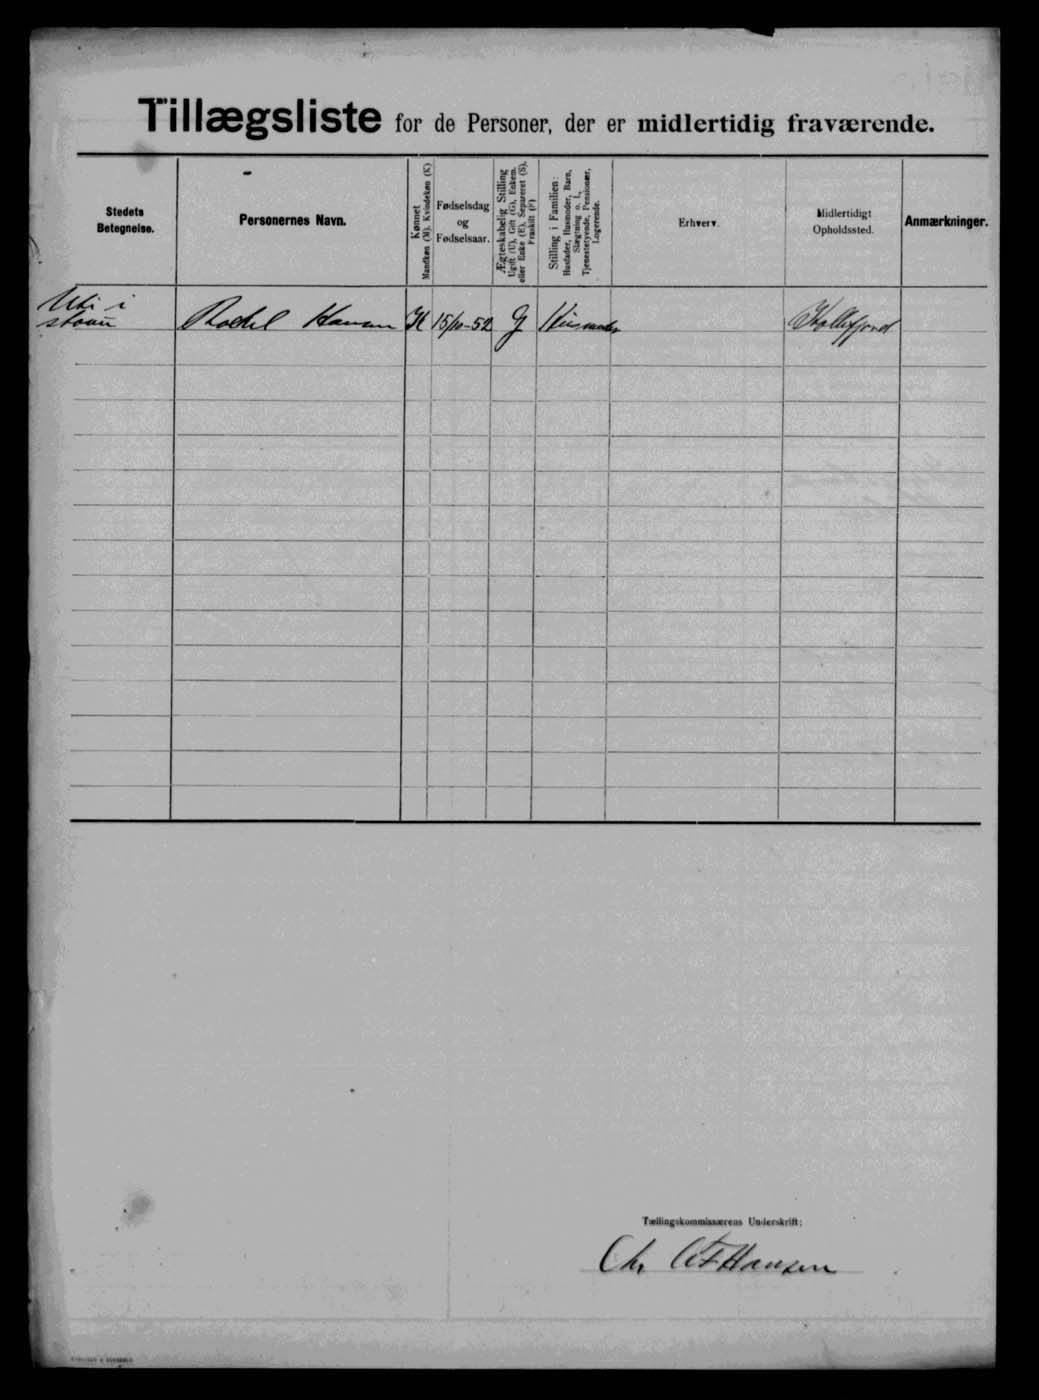 Tillægsliste for de Personer, der er midlertidig fraværende.
Stedets Betegnelse.
Personernes Navn.
Kønnet
Mandkøn (M). Kvindekøn (K)
Fødselsdag
og
Fødselsaar.
Ægteskabelig Stilling
Ugift (U), Gift (G), Enkem.
eller Enke (E), Separeret (S),
Fraskilt (F)
Stilling i Familien:
Husfader, Husmoder, Barn,
Slægtning o. l.,
Tjenestetyende, Pensionær,
Logerende.
Erhverv.
Midlertidigt
Opholdssted.
Anmærkninger.
Uti i
stovu
Rachel Hansen K 15/10-52 G Husmoder Kollefjord
Tællingskommissærens Underskrift:
Chr Hansen